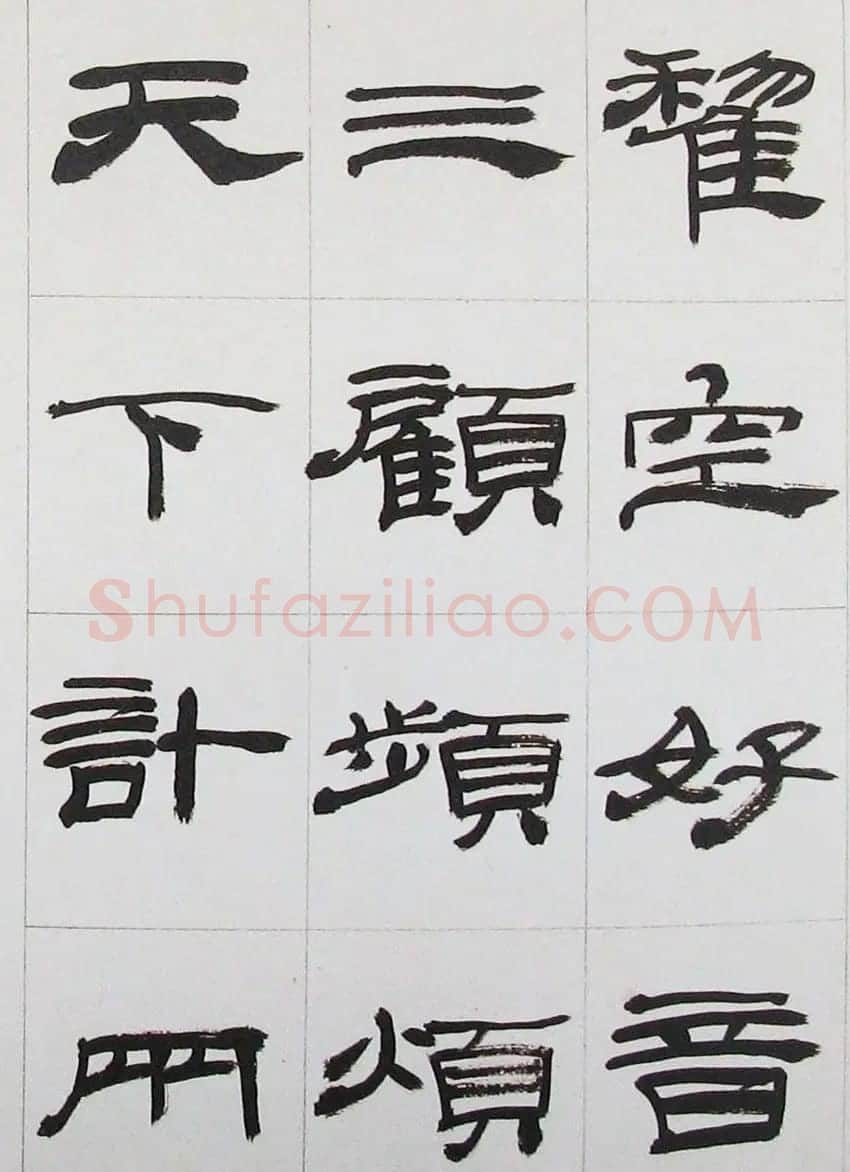 空好音
三顧頻煩
天下計兩
Shufaziliao.COM